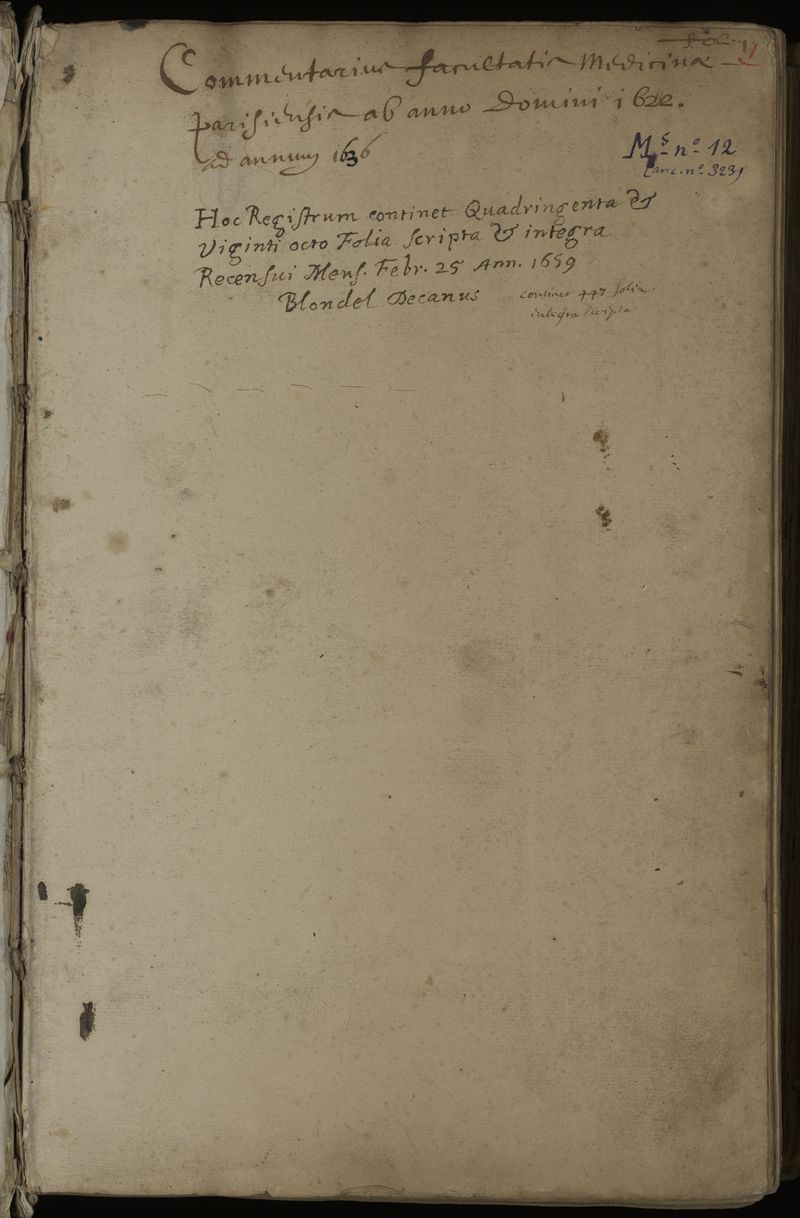 Commentarius facultatis Medicinæ
parisiensis ab anno Domini 1622.
ad annum 1636
Ms nº 12
(anc. nº 323)
Hoc Registrum continet Quadringenta &
Viginti octo Folia scripta & integra
Recensui Mens. Febr. 25 Ann. 1659
Blondel Decanus
continet 447 folia
integra scripta